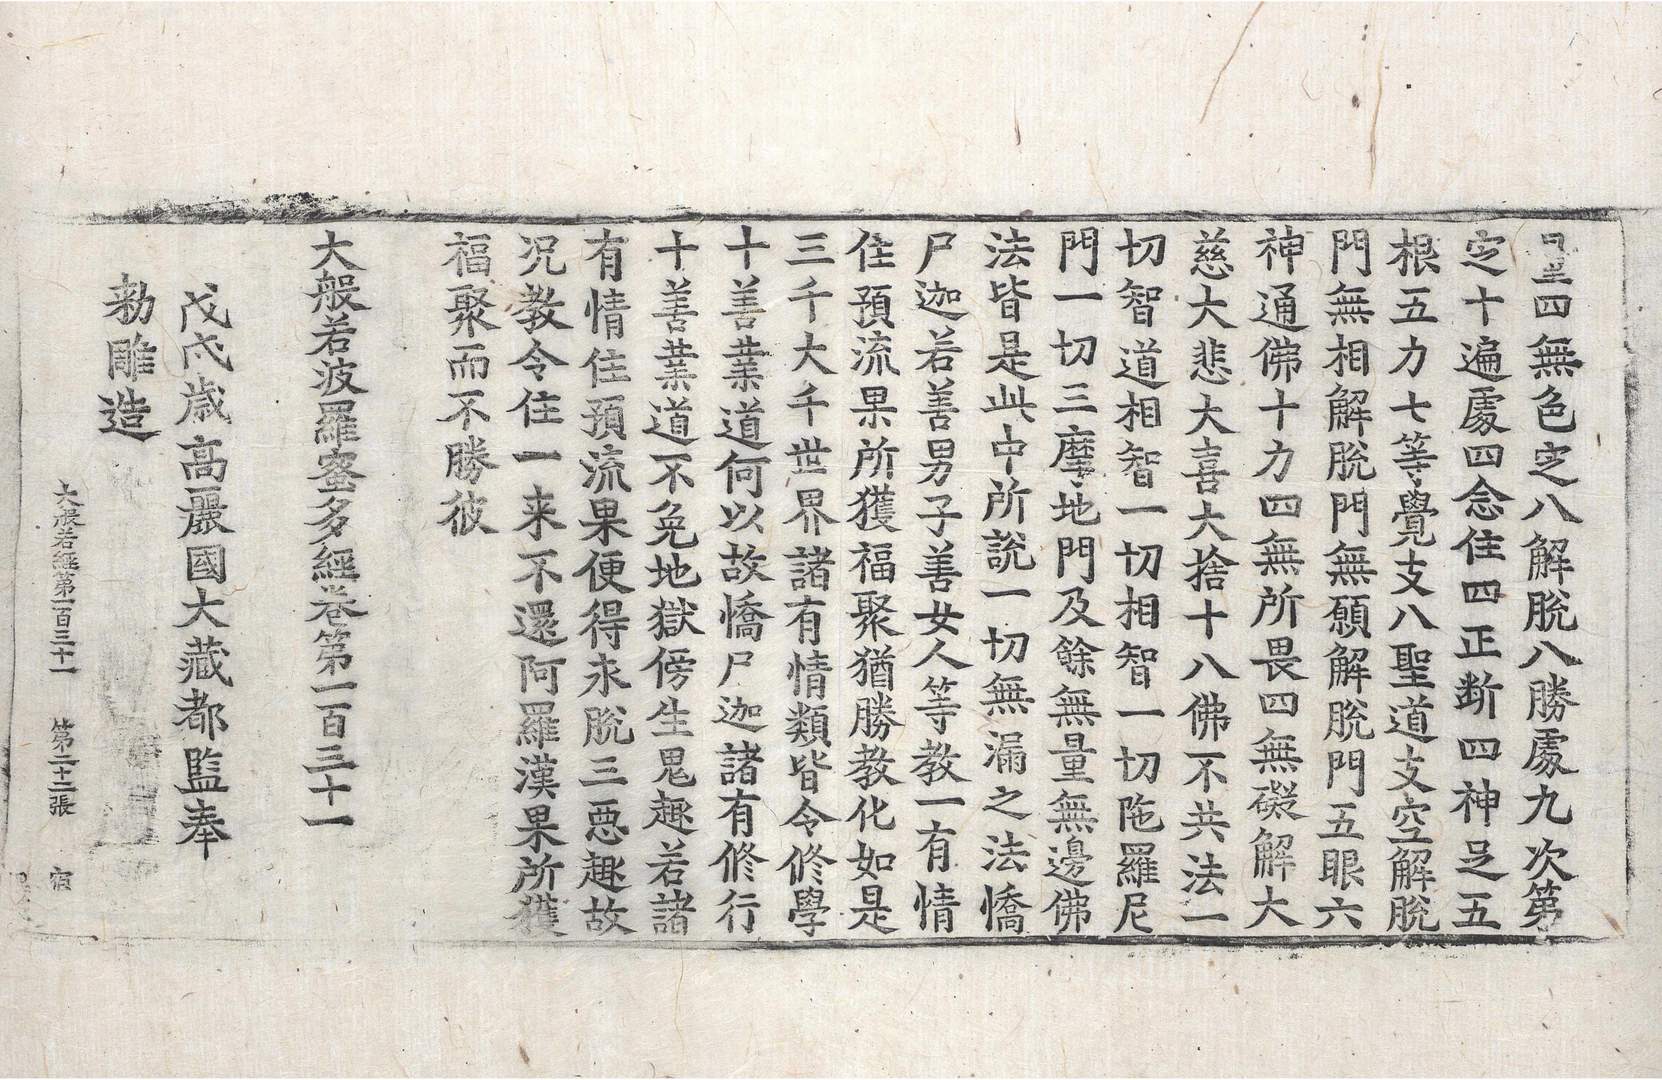 量四無色定八解脫八勝處九次第
定十遍處四念住四正断四神足五
根五力七等覺支八聖道支空解脫
門無相解脫門無願解脫門五眼六
神通佛十力四無所畏四無礙解大
慈大悲大喜大捨十八佛不共法一
切智道相智一切相智一切陁羅尼
門一切三摩地門及餘無量無邊佛
法皆是此中所說一切無漏之法憍
尸迦若善男子善女人等教一有情
住預流果所獲福聚猶勝教化如是
三千大千世界諸有情類皆令修學
十善業道何以故憍尸迦諸有修行
十善業道不免地獄傍生鬼趣若諸
有情住預流果便得永脫三惡趣故
况教令住一来不還阿羅漢果所獲
福聚而不勝彼
大般若波羅蜜多經卷第一百三十一
戊戌歲高麗國大藏都監奉
勑雕造
大般若經第一百三十一 第二十三張 宿